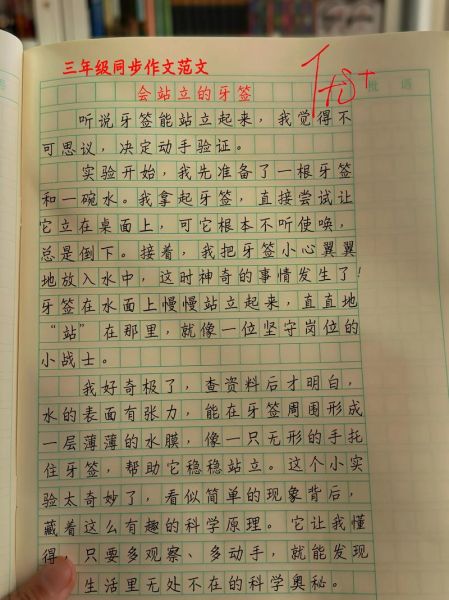 三年级同步作文范文
优+
批语
会站立的牙签
听说牙签能站立起来，我觉得不
可思议，决定动手验证。
实验开始，我先准备了一根牙签
和一碗水。我拿起牙签，直接尝试让
它立在桌面上，可它根本不听使唤，
总是倒下。接着，我把牙签小心翼翼
地放入水中，这时神奇的事情发生了！
牙签在水面上慢慢站立起来，直直地
“站”在那里，就像一位坚守岗位的
小战士。
我好奇极了，查资料后才明白，
水的表面有张力，能在牙签周围形成
一层薄薄的水膜，像一只无形的手托
住牙签，帮助它稳稳站立。这个小实
验太奇妙了，看似简单的现象背后，
藏着这么有趣的科学原理。它让我懂
得，只要多观察、多动手，就能发现
生活里无处不在的科学奥秘。